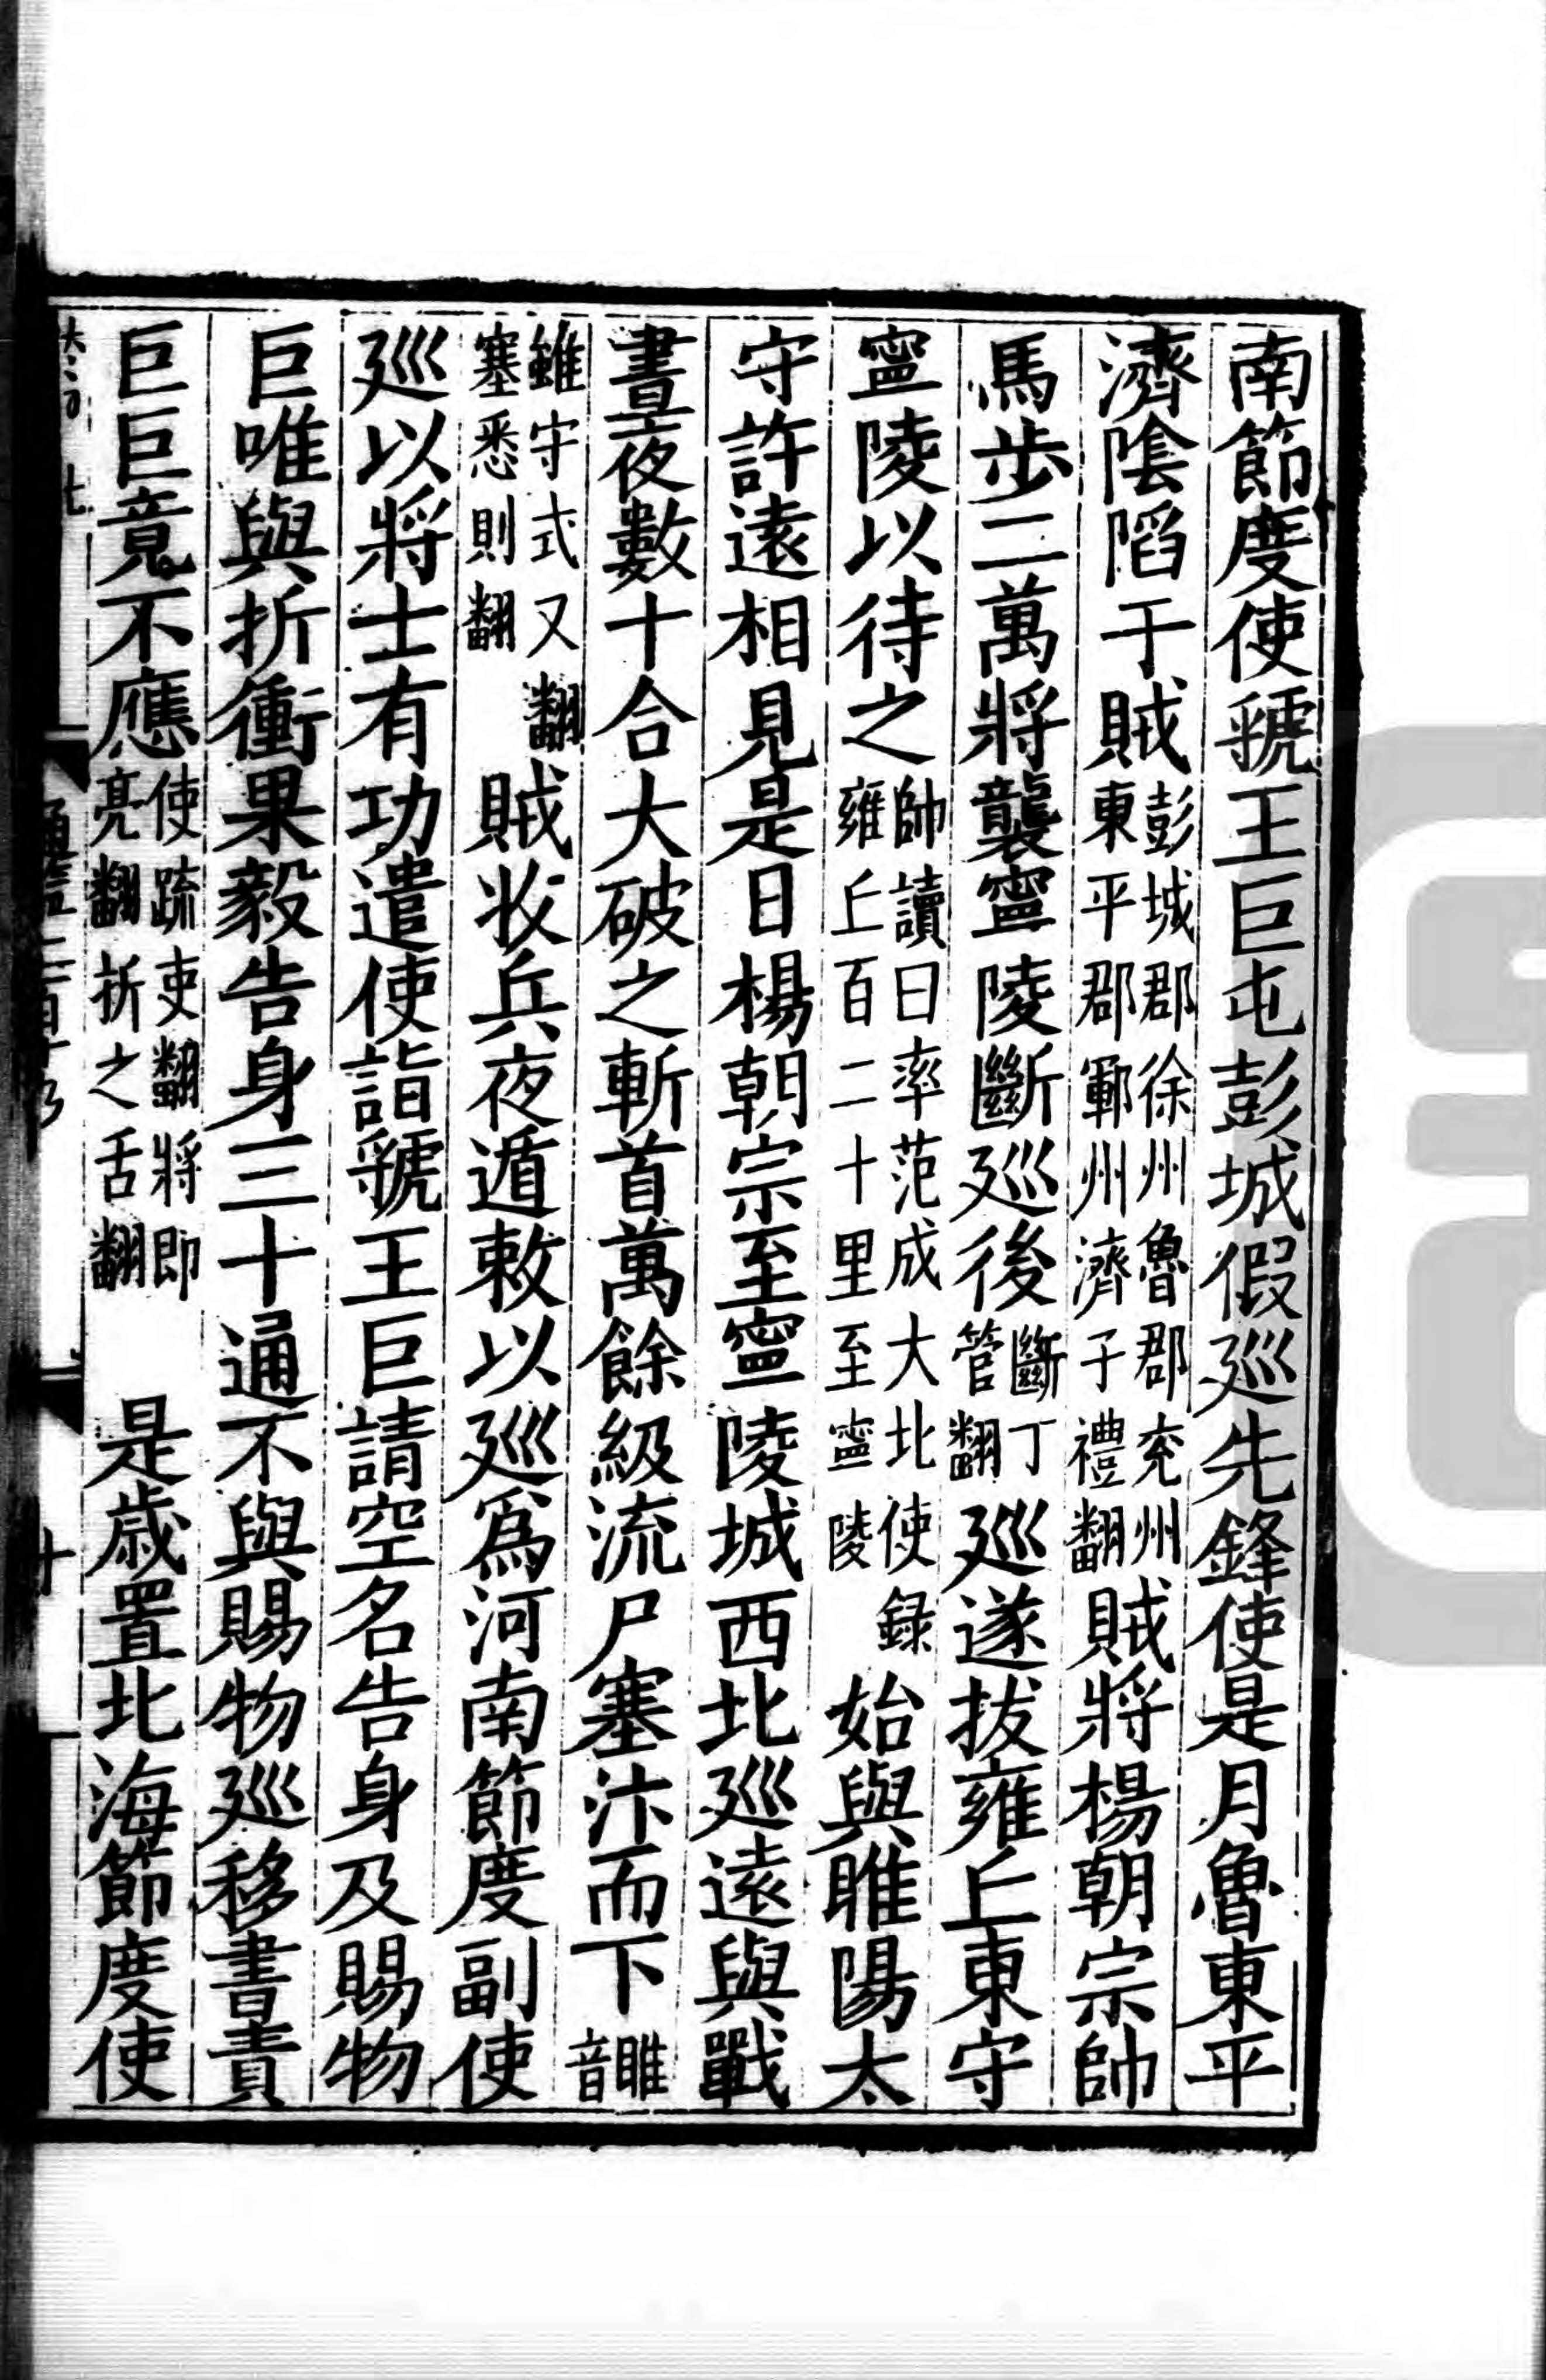 南節度使虢王巨屯彭城假巡先鋒使是月魯東平
濟隂陷于賊彭城郡徐州魯郡兖州東平郡鄆州濟子禮翻賊將楊朝宗帥
馬步二萬將襲寧陵斷巡後斷丁管翻巡遂拔雍丘東守
寧陵以待之帥讀曰率范成大北使録雍丘百二十里至寧陵始與睢陽太
守許遠相見是日楊朝宗至寧陵城西北巡遠與戰
晝夜數十合大破之斬首萬餘級流尸塞汴而下睢音
雖守式又翻塞悉則翻賊收兵夜遁敕以巡爲河南節度副使
巡以將士有功遣使詣虢王巨請空名告身及賜物
巨唯與折衝果毅告身三十通不與賜物巡移書責
巨巨竟不應使疏吏翻將即亮翻折之舌翻是歲置北海節度使